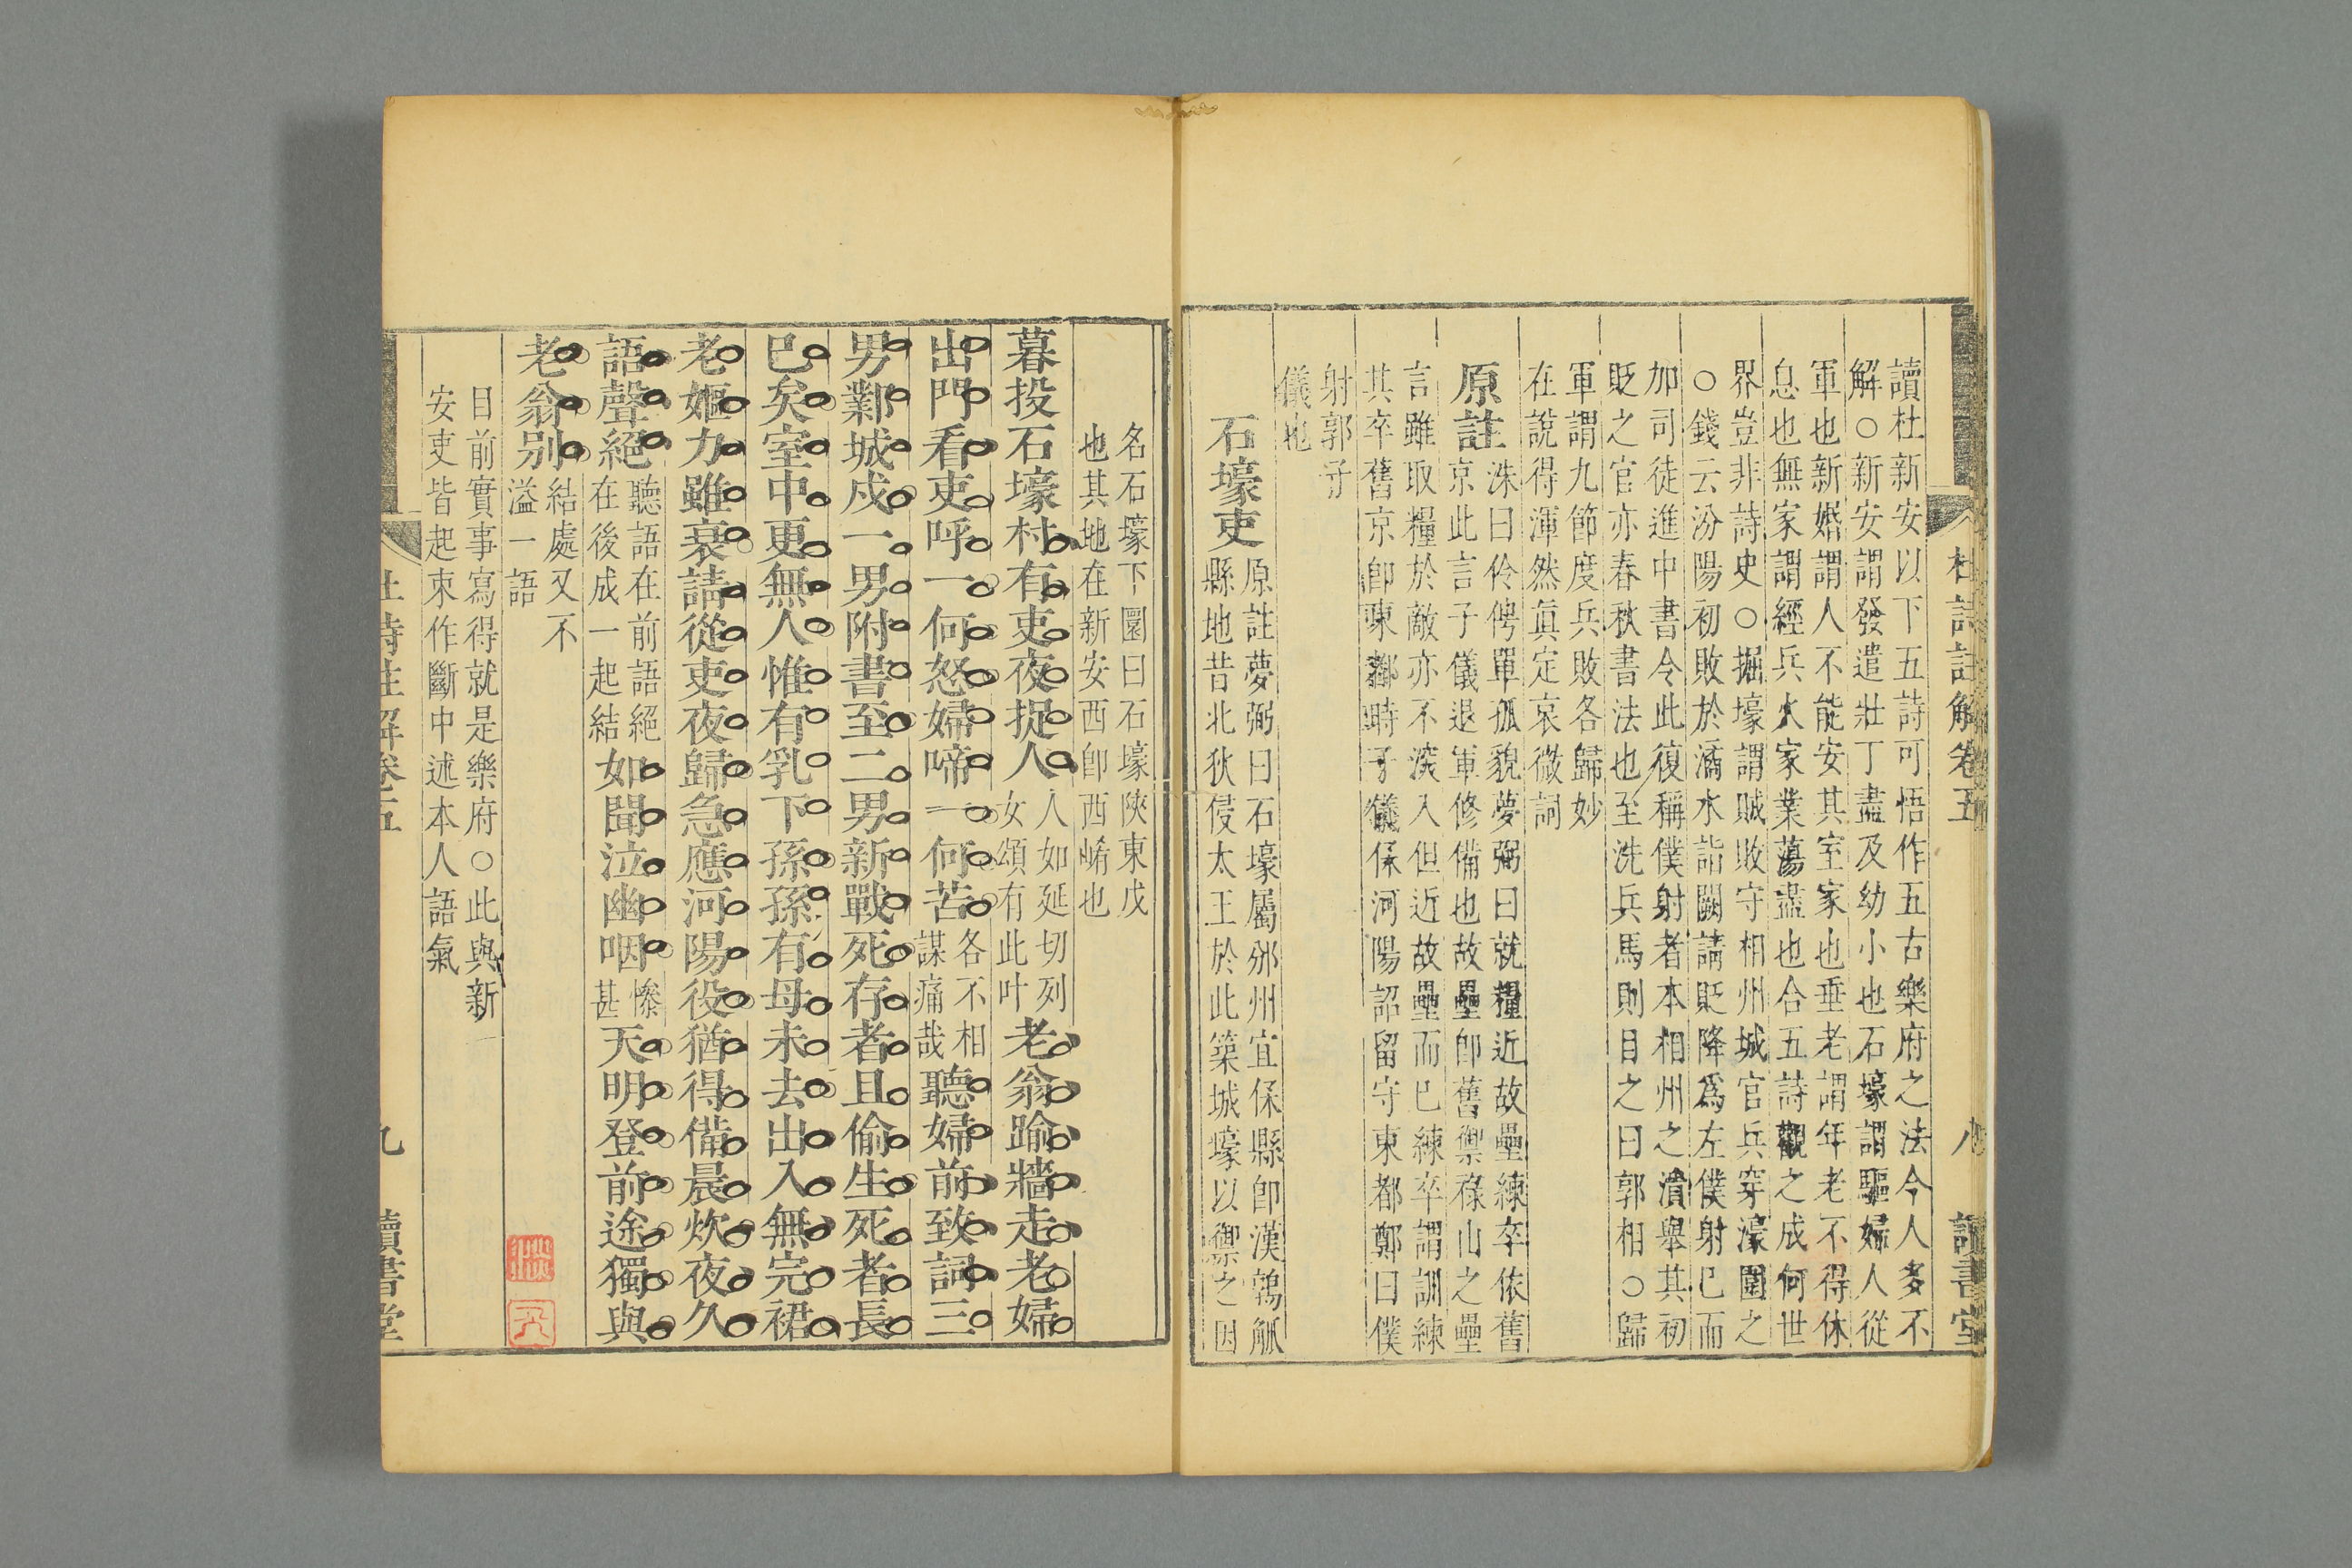 杜詩註解卷五
八
讀書堂
讀杜新安以下五詩可悟作五古樂府之法今人多不
解○新安謂發遣壯丁盡及幼小也石壕謂驅婦人從
軍也新婚謂人不能安其室家也垂老謂年老不得休
息也無家謂經兵火家業蕩盡也合五詩觀之成何世
界豈非詩史○掘壕謂賊敗守相州城官兵穿濠圍之
○錢云汾陽初敗於滻水詣闕請貶降爲左僕射已而
加司徒進中書令此復稱僕射者本相州之潰舉其初
貶之官亦春秋書法也至洗兵馬則目之曰郭相○歸
軍謂九節度兵敗各歸妙
在說得渾然眞定哀微詞
原註
洙曰伶俜單孤貌夢弼曰就糧近故壘練卒依舊
京此言子儀退軍修備也故壘卽舊禦祿山之壘
言雖取糧於敵亦不深入但近故壘而已練卒謂訓練
其卒舊京卽東都時子儀保河陽詔留守東都鄭曰僕
射郭子
儀也
石壕吏
原註夢弼曰石壕屬邠州宜保縣卽漢鶉觚
縣地昔北狄侵太王於此築城壕以禦之因
名石壕下圜曰石壕陝東戍
也其地在新安西卽西崤也
暮投石壕村有吏夜捉人
人如延切列
女頌有此叶
老翁踰牆走老婦
出門看吏呼一何怒婦啼一何苦
各不相
謀痛哉
聽婦前致詞三
男鄴城戍一男附書至二男新戰死存者且偷生死者長
已矣室中更無人惟有乳下孫孫有母未去出入無完裙
老嫗力雖衰請從吏夜歸急應河陽役猶得備晨炊夜久
語聲絕
聽語在前語絕
在後成一起結
如聞泣幽咽
慘
甚
天明登前途獨與
老翁別
結處又不
溢一語
目前實事寫得就是樂府○此與新
安吏皆起束作斷中述本人語氣
杜詩註解卷五
九
讀書堂